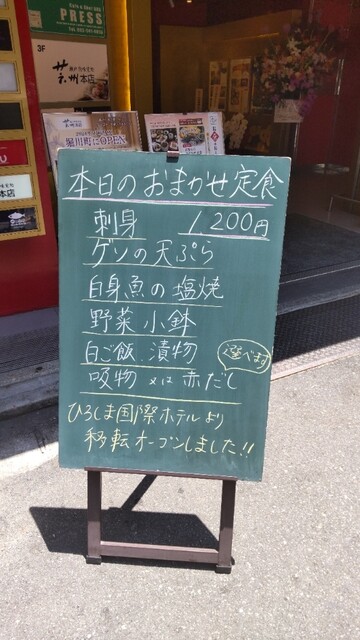 PRESS
3F
本店
堀川町にOPEN
本日のおまかせ定食
刺身 1,200円
ゲソの天ぷら
白身魚の塩焼
野菜小鉢
白ご飯 漬物
選べます
吸物 又は 赤だし
ひろしま国際ホテルより
移転オープンしました!!